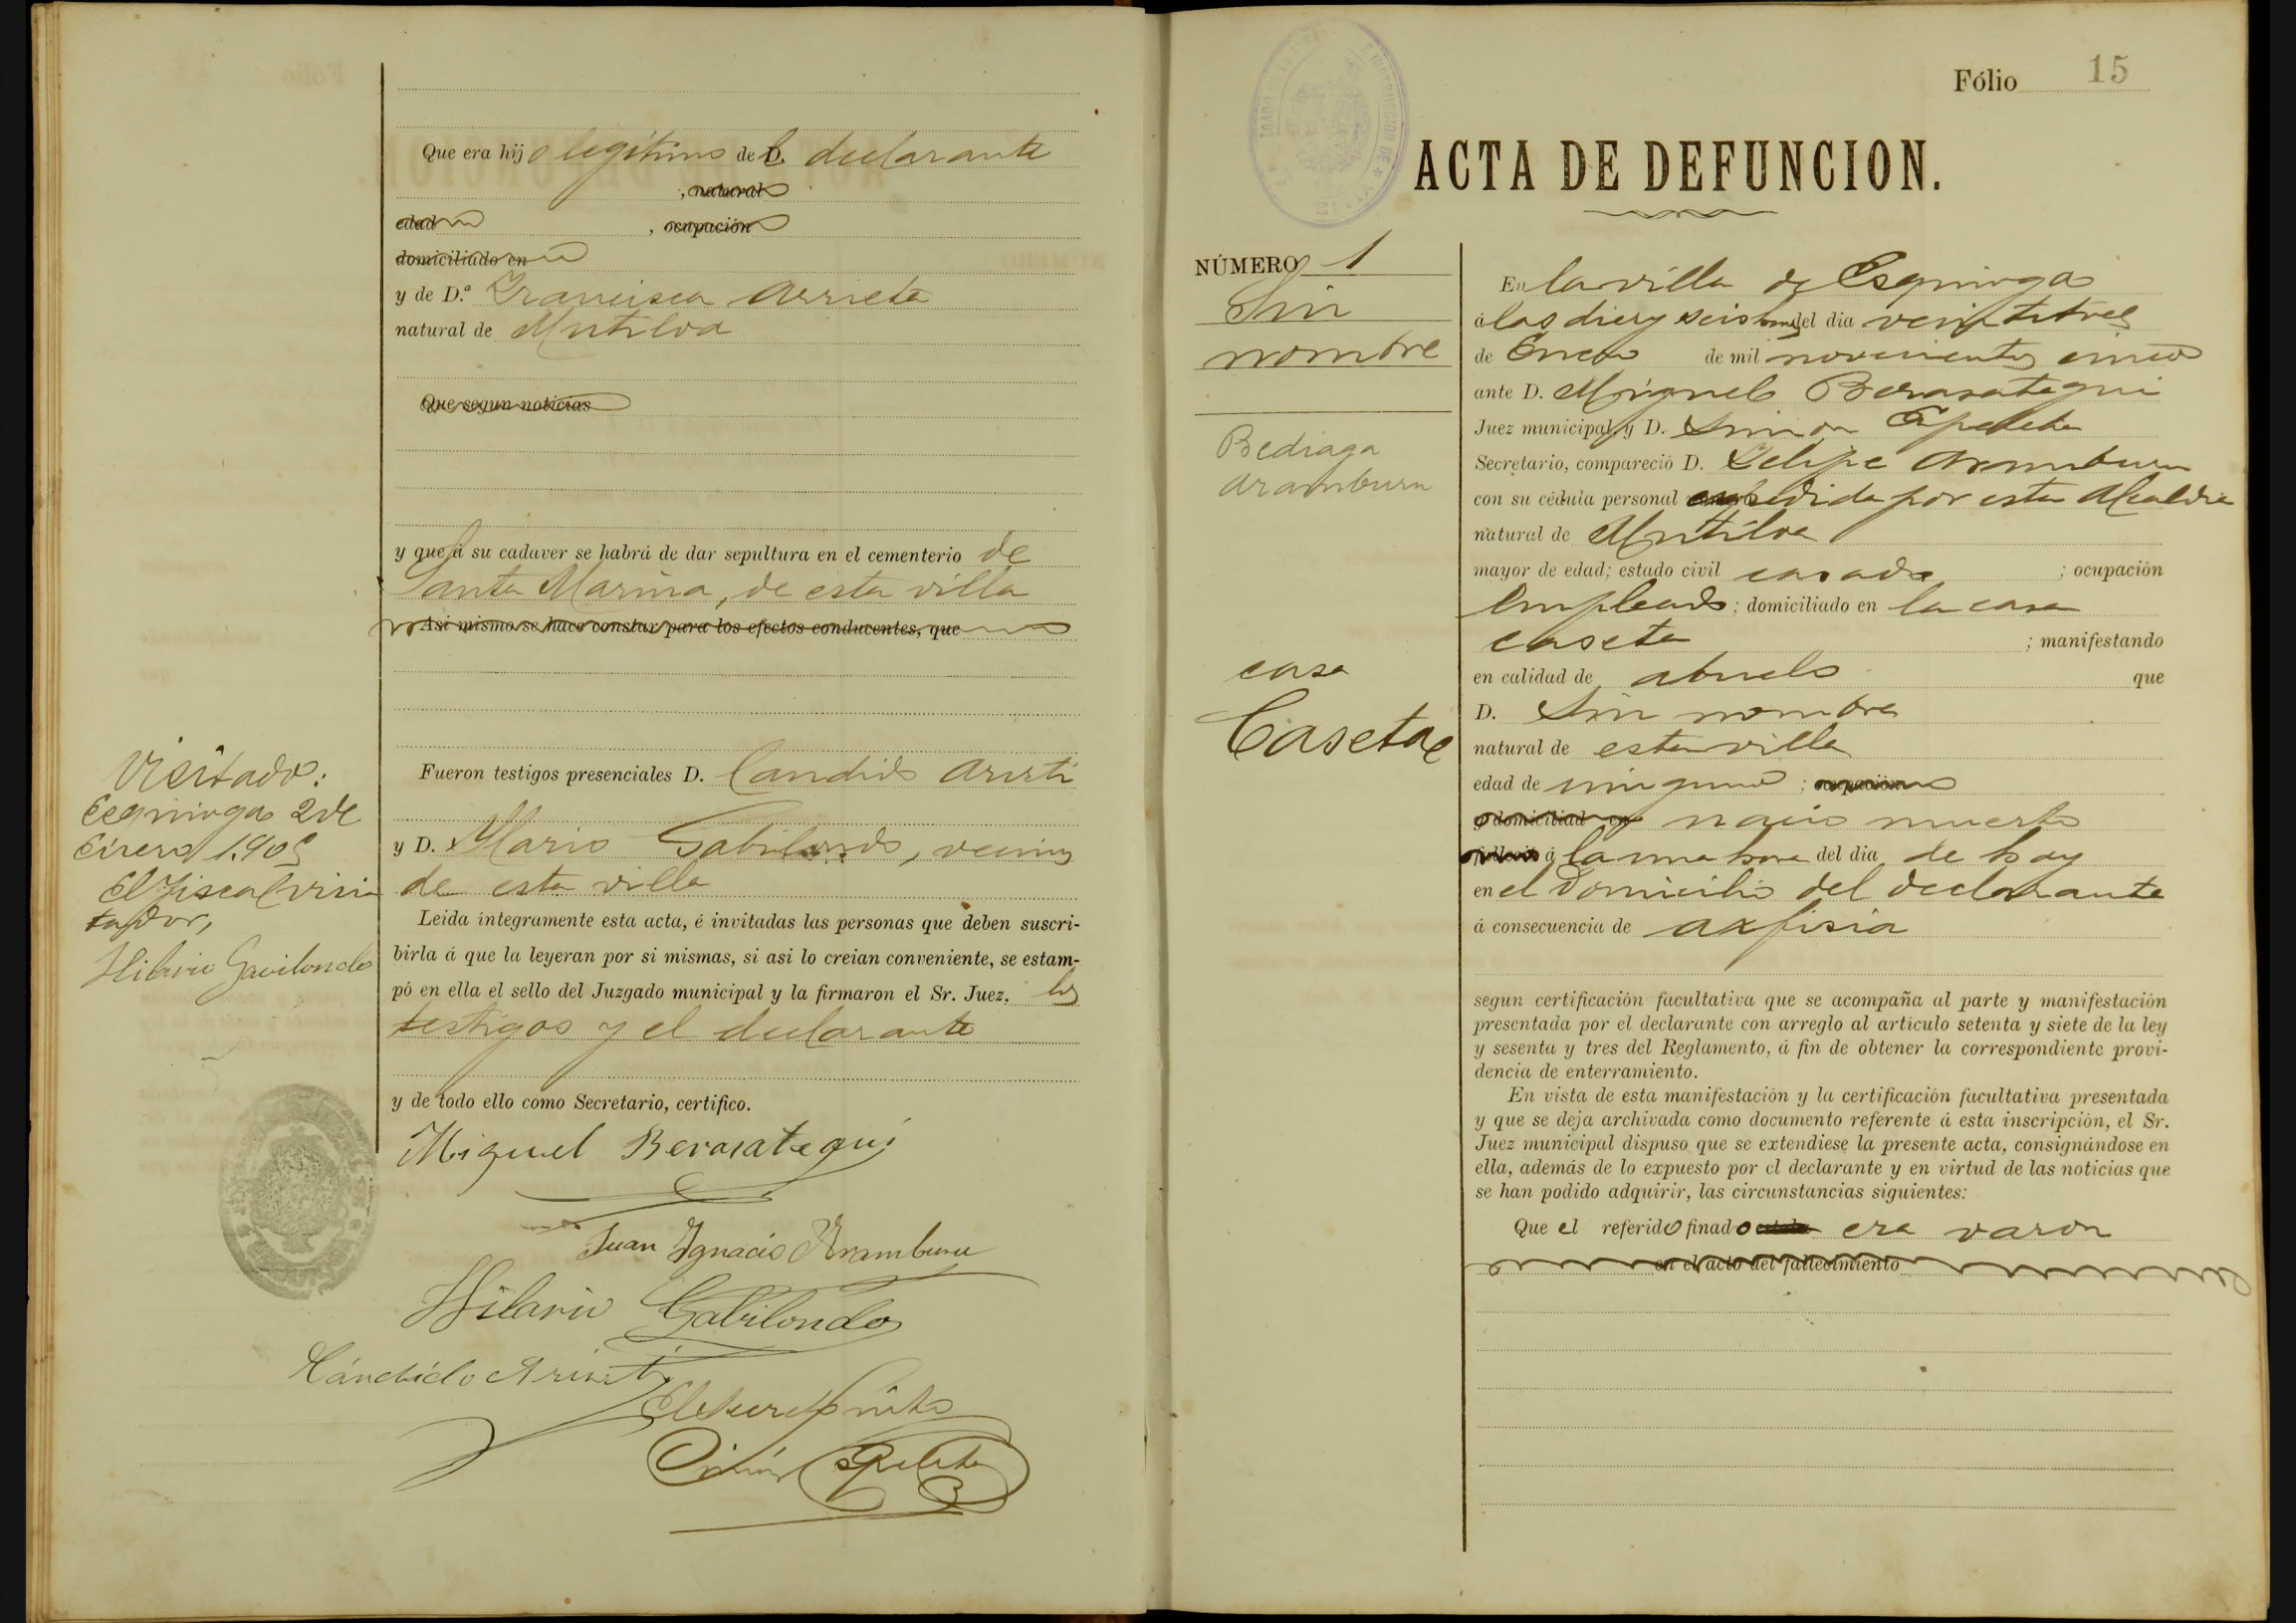 Que era hijo legítimo del declarante
, natural
edad , ocupación
domiciliado en
y de D.ª Francisca Arrieta
natural de Mutiloa
Que segun noticias
y que á su cadaver se habrá de dar sepultura en el cementerio de
Santa Marina, de esta villa
Asi mismo se hace constar para los efectos conducentes, que
Fueron testigos presenciales D. Candido Aristi
y D. Hilario Gabilondo, vecinos
de esta villa
Leida íntegramente esta acta, é invitadas las personas que deben suscri-
birla á que la leyeran por si mismas, si asi lo creian conveniente, se estam-
pó en ella el sello del Juzgado municipal y la firmaron el Sr. Juez, los
testigos y el declarante
y de todo ello como Secretario, certifico.
Miguel Berasategui
Juan Ygnacio Aramburu
Hilario Gabilondo
Cándido Aristi
El Secretario
Simón Espeleta
Visitado:
Ezquioga 2 de
Enero 1.905
El Fiscal visi
tador,
Hilario Gavilondo
Fólio 15
ACTA DE DEFUNCION.
NÚMERO 1
Sin
nombre
Bediaga
Aramburu
casa
Caseta
En la villa de Ezquioga
á las diez y seis horas del dia veintitres
de Enero de mil novecientos cinco
ante D. Miguel Berasategui
Juez municipal, y D. Simon Espeleta
Secretario, compareció D. Felipe Aramburu
con su cédula personal expedida por esta Alcaldia
natural de Mutiloa
mayor de edad; estado civil casado ; ocupación
empleado ; domiciliado en la casa
caseta ; manifestando
en calidad de abuelo que
D. Sin nombre
natural de esta villa
edad de ninguna ; ocupación
y domiciliad en nació muerto
falleció á la una hora del dia de hoy
en el domicilio del declarante
á consecuencia de axfisia
segun certificación facultativa que se acompaña al parte y manifestación
presentada por el declarante con arreglo al artículo setenta y siete de la ley
y sesenta y tres del Reglamento, á fin de obtener la correspondiente provi-
dencia de enterramiento.
En vista de esta manifestación y la certificación facultativa presentada
y que se deja archivada como documento referente á esta inscripción, el Sr.
Juez municipal dispuso que se extendiese la presente acta, consignándose en
ella, además de lo expuesto por el declarante y en virtud de las noticias que
se han podido adquirir, las circunstancias siguientes:
Que el referido finado estaba era varon
en el acto del fallecimiento